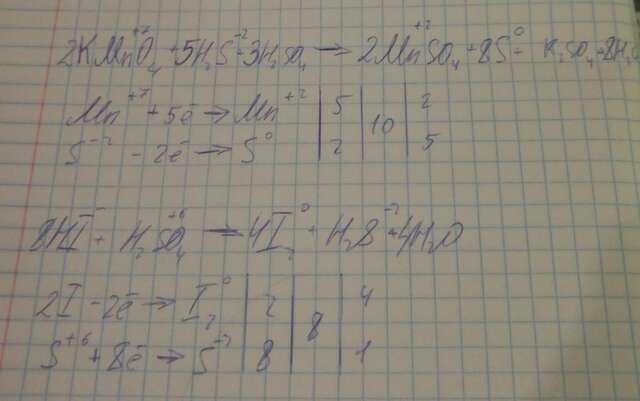 2KMn⁺⁷O₄ + 5H₂S⁻² + 3H₂SO₄ → 2Mn⁺²SO₄ + 8S⁰ + K₂SO₄ + 8H₂O
Mn⁺⁷ + 5ē → Mn⁺² | 5 | 10 | 2
S⁻² - 2ē → S⁰ | 2 | | 5
8HI⁻ + H₂S⁺⁶O₄ → 4I₂⁰ + H₂S⁻² + 4H₂O
2I - 2ē → I₂⁰ | 2 | 8 | 4
S⁺⁶ + 8ē → S⁻² | 8 | | 1